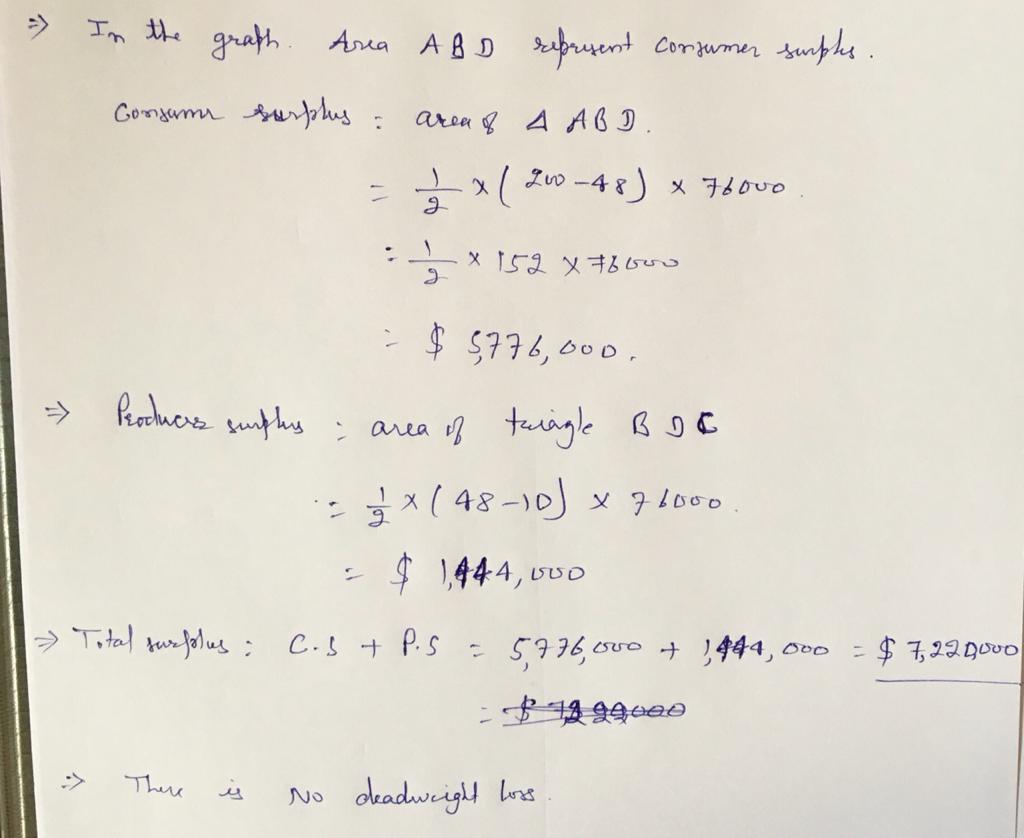 ⇒ In the graph. Area A B D represent consumer surplus.
Consumer surplus = area of Δ ABD.
= 1/2 × (200 - 48) × 76000.
= 1/2 × 152 × 76000
= $ 5,776,000.
⇒ Producers surplus = area of triangle B D C
= 1/2 × (48 - 10) × 76000.
= $ 1,444,000
⇒ Total surplus : C.S + P.S = 5,776,000 + 1,444,000 = $ 7,220,000
⇒ There is No deadweight loss.